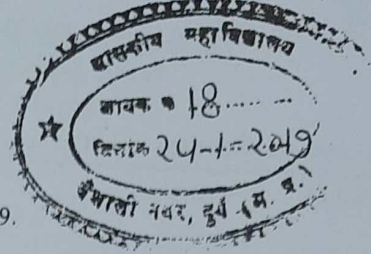 शासकीय महाविद्यालय
आवक क 18
दिनांक 24-1-2019
वैशाली नगर, दुर्ग (म. प्र.)
9.